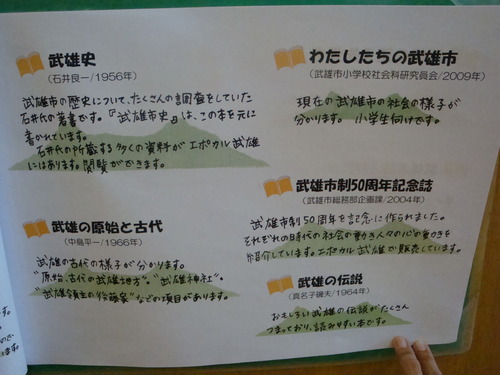 武雄史
(石井良一/1956年)
武雄市の歴史について、たくさんの調査をしていた
石井氏の著書です。『武雄市史』は、この本を元に
書かれています。
石井氏の所蔵する多くの資料が エポカル武雄
にはあります。閲覧ができます。
武雄の原始と古代
(中島平一/1966年)
武雄の古代の様子が分かります。
"原始、古代の武雄地方"。"武雄神社"。
"武雄領主の後藤家" などの項目があります。
わたしたちの武雄市
(武雄市小学校社会科研究員会/2009年)
現在の武雄市の社会の様子が
分かります。 小学生向けです。
武雄市制50周年記念誌
(武雄市総務部企画課/2004年)
武雄市制50周年を記念に作られました。
それぞれの時代の社会の動き人々の心の動きを
紹介しています。エポカル武雄で販売しています。
武雄の伝説
(真名子磯夫/1964年)
おもしろい武雄の伝説がたくさん
つまっており、読みやすい本です。